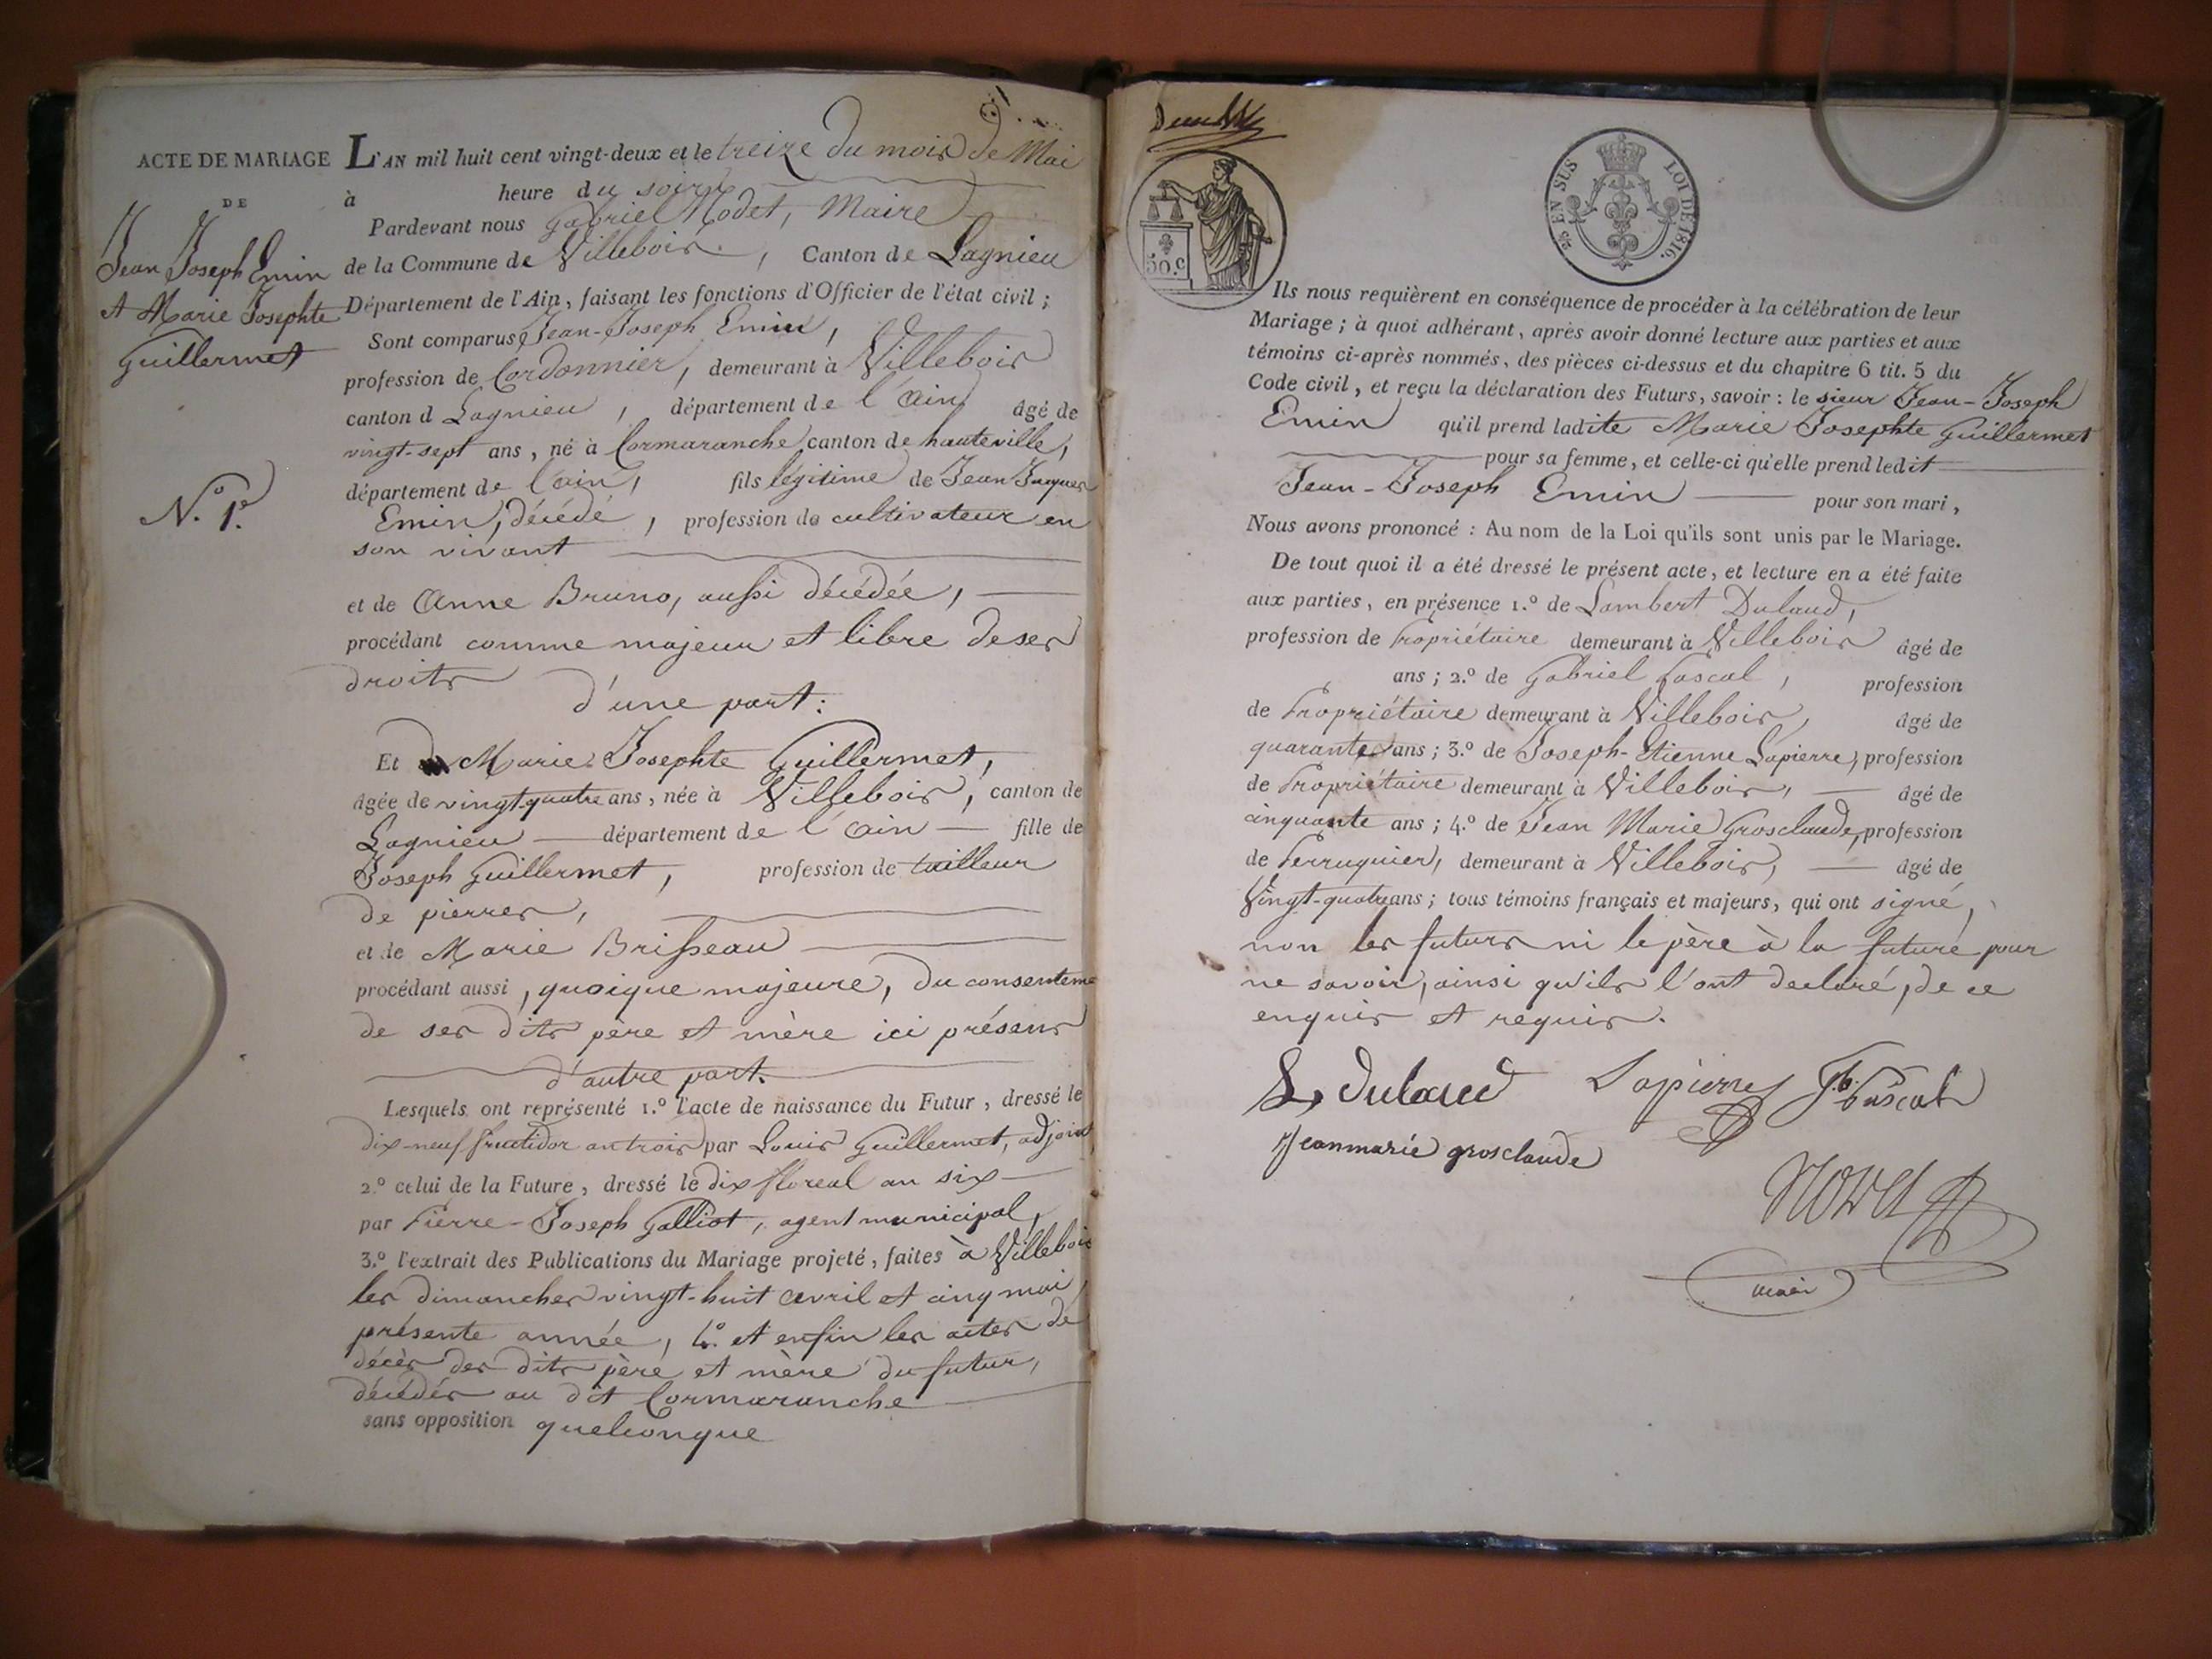 ACTE DE MARIAGE
DE
Jean Joseph Emin
et Marie Josephte
Guillermet
N.º 1.er
L'AN mil huit cent vingt-deux et le treize du mois de Mai
à heure du soir
Pardevant nous Gabriel Nodet, Maire
de la Commune de Villebois, Canton de Lagnieu
Département de l'Ain, faisant les fonctions d'Officier de l'état civil;
Sont comparus Jean-Joseph Emin,
profession de Cordonnier, demeurant à Villebois
canton d Lagnieu, département de l'ain âgé de
vingt-sept ans, né à Cormaranche canton de hauteville,
département de l'ain, fils légitime de Jean Jaques
Emin, décédé, profession de cultivateur en
son vivant
et de Anne Bruno, aussi décédée,
procédant comme majeur et libre de ses
droits
d'une part:
Et Marie Josephte Guillermet,
âgée de vingt-quatre ans, née à Villebois, canton de
Lagnieu département de l'ain fille de
Joseph Guillermet, profession de tailleur
de pierres,
et de Marie Brisseau
procédant aussi, quoique majeure, du consenteme
de ses dits père et mère ici présens
d'autre part.
Lesquels ont représenté 1.º l'acte de naissance du Futur, dressé le
dix-neuf fructidor an trois par Louis Guillermet, adjoint
2.º celui de la Future, dressé le dix floreal an six
par Pierre-Joseph Galliot, agent municipal,
3.º l'extrait des Publications du Mariage projeté, faites à Villebois
les dimanches vingt-huit avril et cinq mai
présente année, 4.º et enfin les actes de
décès des dits père et mère du futur,
décédés au dit Cormaranche
sans opposition quelconque
50.c
25 EN SUS LOI DE 1816.
Ils nous requièrent en conséquence de procéder à la célébration de leur
Mariage; à quoi adhérant, après avoir donné lecture aux parties et aux
témoins ci-après nommés, des pièces ci-dessus et du chapitre 6 tit. 5 du
Code civil, et reçu la déclaration des Futurs, savoir: le sieur Jean-Joseph
Emin qu'il prend ladite Marie Josephte Guillermet
pour sa femme, et celle-ci qu'elle prend ledit
Jean-Joseph Emin pour son mari,
Nous avons prononcé: Au nom de la Loi qu'ils sont unis par le Mariage.
De tout quoi il a été dressé le présent acte, et lecture en a été faite
aux parties, en présence 1.º de Lambert Dulaud,
profession de Propriétaire demeurant à Villebois âgé de
ans; 2.º de Gabriel Pascal, profession
de Propriétaire demeurant à Villebois, âgé de
quarante ans; 3.º de Joseph-Etienne Lapierre, profession
de Propriétaire demeurant à Villebois, âgé de
cinquante ans; 4.º de Jean Marie Grosclaude, profession
de Perruquier, demeurant à Villebois, âgé de
Vingt-quatre ans; tous témoins français et majeurs, qui ont signé,
non les futurs ni le père à la future pour
ne savoir, ainsi qu'ils l'ont declaré, de ce
enquis et requis.
L. dulaud Lapierre Gb. Pascal
Jeanmarie grosclaude
NODET
maire